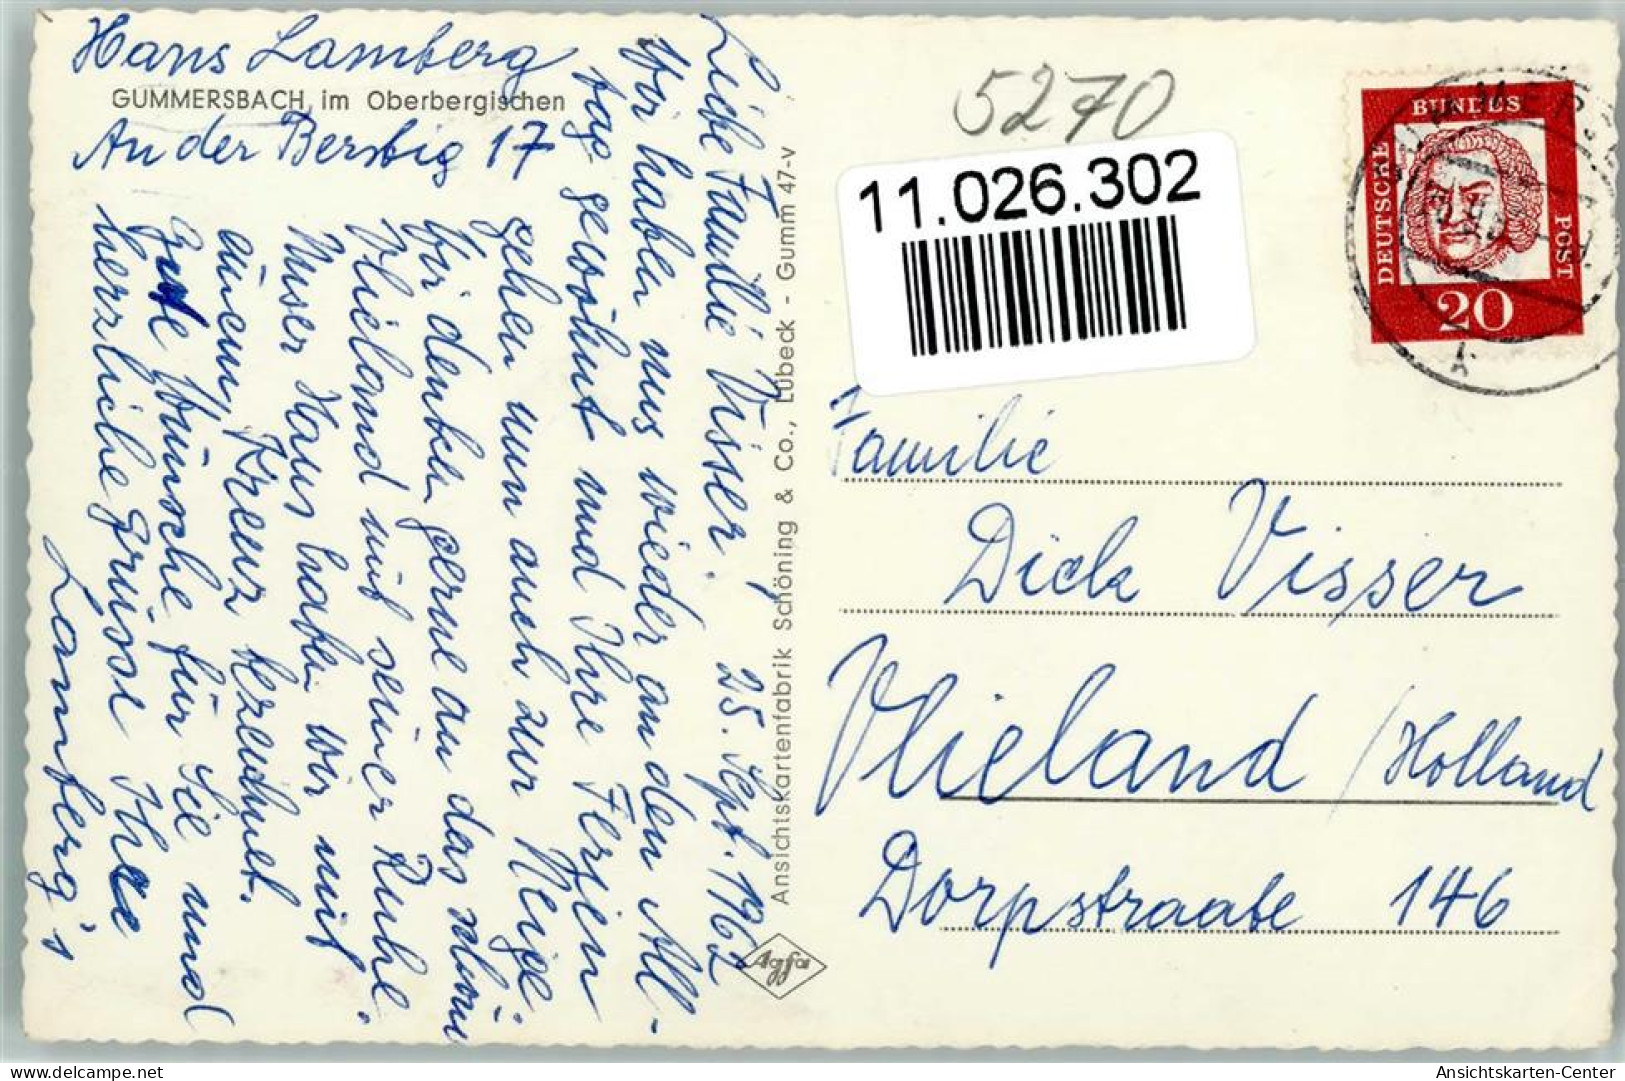 Hans Lamberg
GUMMERSBACH im Oberbergischen
An der Berstig 17
Liebe Familie Visser, 25. Sept. 1962
Wir haben uns wieder an den All-
tag gewöhnt und Ihre Ferien
gehen nun auch zur Neige.
Wir denken gerne an das schöne
Vlieland mit seiner Ruhe.
Unser Haus haben wir mit
einem Kreuz bezeichnet.
Gute Wünsche für Sie und
herzliche Grüsse Ihre
Lamberg's
Ansichtskartenfabrik Schöning & Co., Lübeck - Gumm 47-v
Agfa
5270
11.026.302
DEUTSCHE BUNDES POST
20
Familie
Dick Visser
Vlieland / Holland
Dorpstraate 146
Ansichtskarten-Center